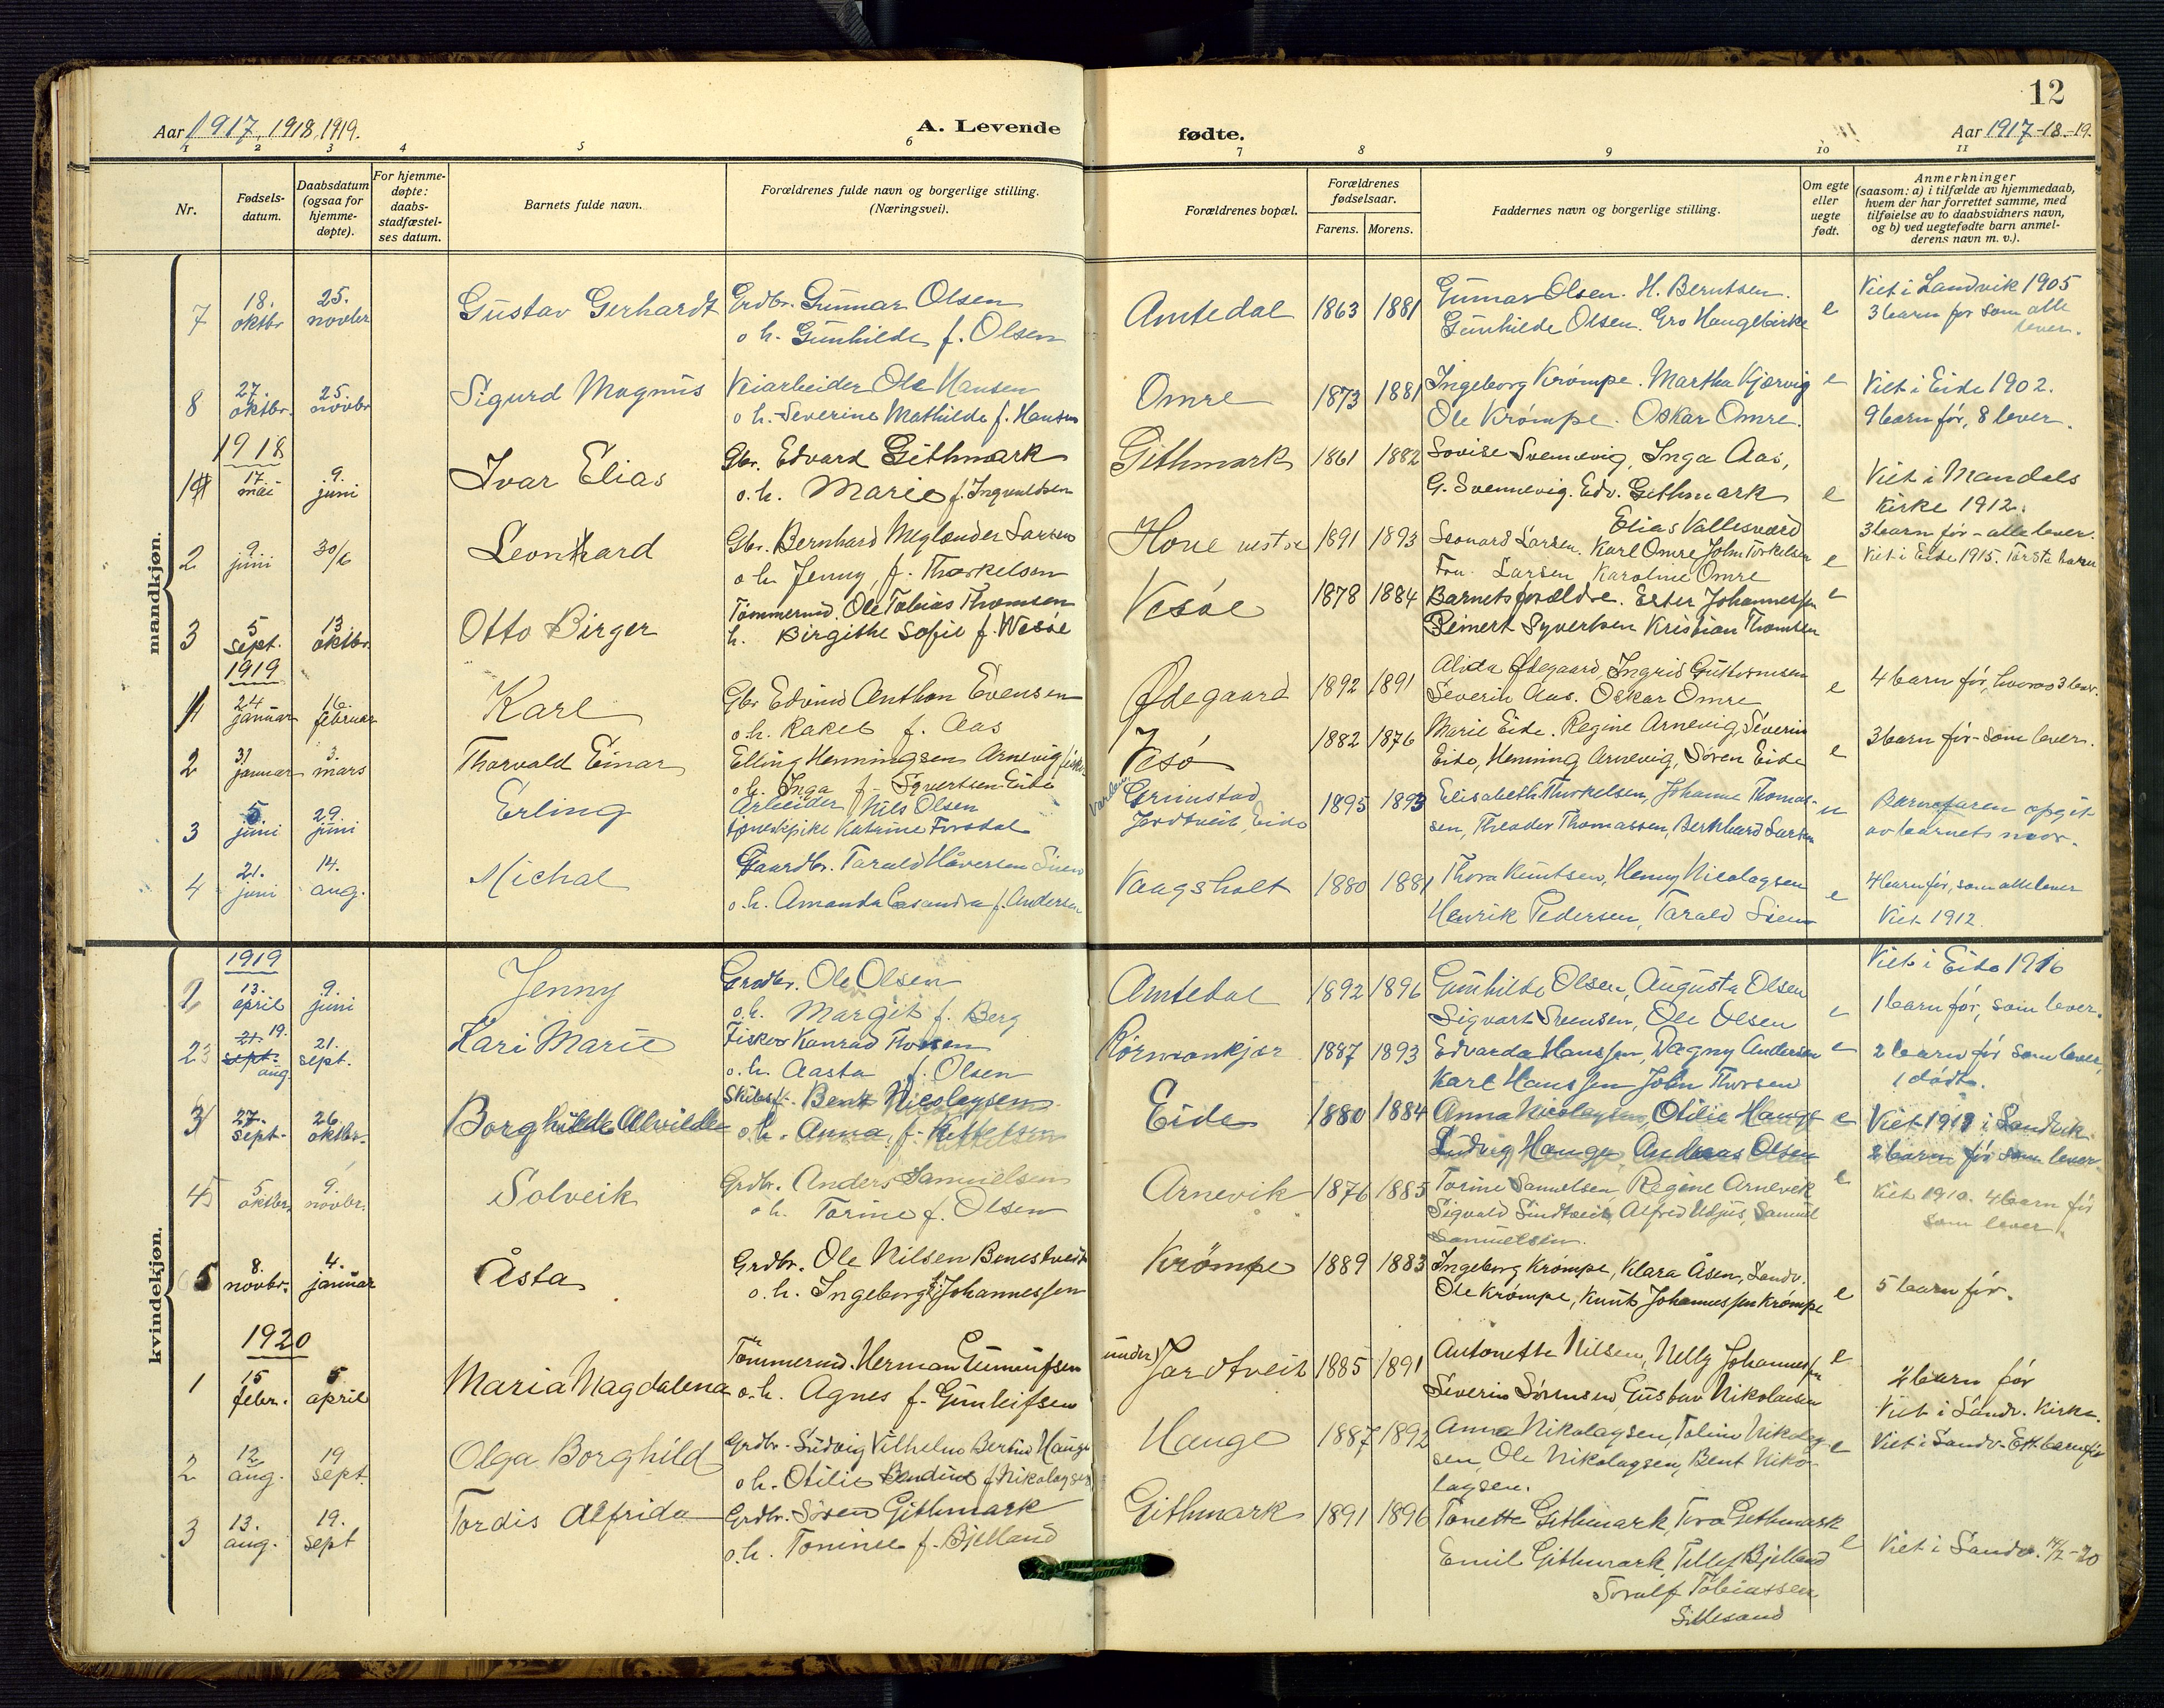 12
Aar 1917, 1918, 1919.
A. Levende
fødte.
Aar 1917-18-19.
1 2 3 4 5 6 7 8 9 10 11
Nr.
Fødsels-
datum.
Daabsdatum
(ogsaa for
hjemme-
døpte).
For hjemme-
døpte:
daabs-
stadfæstel-
ses datum.
Barnets fulde navn.
Forældrenes fulde navn og borgerlige stilling.
(Næringsvei).
Forældrenes bopæl.
Forældrenes
fødselsaar.
Farens. Morens.
Faddernes navn og borgerlige stilling.
Om egte
eller
uegte
født.
Anmerkninger
(saasom: a) i tilfælde av hjemmedaab,
hvem der har forrettet samme, med
tilføielse av to daabsvidners navn,
og b) ved uegtefødte barn anmel-
derens navn m. v.).
mandkjøn.
7 18. oktbr 25. novber Gustav Gerhardt Grdbr. Gunnar Olsen
o h. Gunhilde f. Olsen
Amtedal 1863 1881 Gunnar Olsen. H. Berntsen.
Gunhilde Olsen. Gro Haugebirke e
Viet i Landvik 1905
3 barn før som alle
lever.
8 27. oktbr. 25. novbr Sigurd Magnus Veiarbeider Ole Hansen
o h. Severine Mathilde f. Hansen
Omre 1873 1881 Ingeborg Krømpe. Martha Kjørvig e
Ole Krømpe. Oskar Omre.
Viet i Eide 1902.
9 barn før, 8 lever.
1918
1 17. mai 9. juni Ivar Elias Gbr. Edvard Githmark
o. h. Marie f. Ingvaldsen
Githmark 1861 1882 Lovise Svennevig, Inga Aas,
G. Svennevig. Edv. Githmark e
Elias Vallesværd
Viet i Mandals
Kirke 1912.
3 barn før - alle lever.
2 9 juni 30/6 Leonhard Gbr. Bernhard Meglander Larsen
o h. Jenny, f. Thorkelsen
Hove vestre 1891 1893 Leonard Larsen. Karl Omre John Torkelsen
Fru Larsen Karoline Omre e
Viet i Eide 1915. Første barn
3 5 sept. 13. oktbr. Otto Birger Tømmermd. Ole Tobias Thomsen
h. Birgithe Sofie f. Vesøe
Vesøe 1878 1884 Barnets forældre. Ester Johannessen e
Reinert Syvertsen Kristian Thomsen
1919
1 24 januar 16. februar Karl Gbr Edvind Anthon Evensen
o. h. Rakel f. Aas
Ødegaard 1892 1891 Alida Ødegaard, Ingrid Guttormsen
Severin Aas. Oskar Omre e
4 barn før, hvorav 3 lever.
2 31 januar 3. mars Thorvald Einar Elling Henningsen Arnevig fisker
o. h. Inga f. Syvertsen Eide
Vesø 1882 1876 Marie Eide. Regine Arnevig, Severin
Eide, Henning Arnevig, Søren Eide e
3 barn før - som lever.
3 5 juni 29. juni Erling Arbeider Nils Olsen
tjenestpike Katrine Forsdal
Grimstad
Jordtveit, Eide 1895 1893 Elisabeth Thorkelsen, Johanne Thomas-
sen, Theodor Thomassen, Bernhard Larsen u
Barnefaren opgit
av barnets mor.
4 21. juni 14. aug. Michal Gaardbr. Tarald Haaversen
o. h. Amanda Casandra f. Andersen
Vaagsholt 1880 1881 Thora Kuntsen, Henny Nicolaysen
Henrik Pedersen, Tarald e
4 barn før, som alle lever
Viet 1912.
kvindekjøn.
1919
13. april 9. juni Jenny Grdbr. Ole Olsen
o. h. Margit f. Berg
Amtedal 1892 1896 Gunhilde Olsen, Augusta Olsen
Sigvart Svensen, Ole Olsen e
Viet i Eide 1916
1 barn før, som lever.
2 21. sept. 19. aug. 21. sept. Kari Marie Fisker Konrad Thorsen
o. h. Aasta f. Olsen
1887 1893 Edvarda Hanssen, Dagny Andersen e
Karl Hanssen John Thorsen
2 barn før som lever,
1 dødt.
3 27. sept. 26 oktbr. Borghilde Alvilde Skibsf. Bent Nicolaysen
o. h. Anna, f. Kittelsen
Eide 1880 1884 Anna Nicolaysen, Otilie Hauge e
Ludvig Hauge, Andreas Olsen
Viet i Landvik
2 barn før som lever
4 5 oktbr. 9. novbr. Solveik Grdbr. Anders Samuelsen
o h. Torine f. Olsen
Arnevik 1876 1885 Torine Samuelsen, Regine Arnevik e
Sigvald Sindtveit, Alfred Udjus, Samuel
Samuelsen.
Viet 1910. 4 barn før
som lever.
5 8. novbr. 4. januar Åsta Grdbr. Ole Nilsen Benestveit
o. h. Ingeborg f. Johannessen
Krømpe 1889 1883 Ingeborg Krømpe, Klara Åsen, Landv.
Ole Krømpe, Knut Johannessen Krømpe e
5 barn før.
1920
1 15 febr. 5 april Maria Magdalena Tømmermd. Herman Gunleifsen
o. h. Agnes f. Gunleifsen
under Jordtveit 1885 1891 Antonette Nilsen, Nelly Johannessen e
Severin Sørensen, Gustav Nikolaisen
2 barn før
Viet i Landv. Kirke.
2 12 aug. 19 sept. Olga Borghild Grdbr. Ludvig Vilhelm Bertin Hauge
o h. Otilie Bendine f. Nikolaysen
Hauge 1887 1892 Anna Nikolaysen, Toline Nikolay-
sen, Ole Nikolaysen, Bent Niko-
laysen. e
Viet i Landv. Ett barn før
3 13. aug. 19. sept Tordis Alfrida Grdbr. Søren Githmark
o. h. Tominee f. Bjelland
Githmark 1891 1896 Tonette Githmark, Tora Githmark
Emil Githmark, Tellef Bjelland e
Torulf Tobiassen
Lillesand
Viet i Landv. 14/2-20